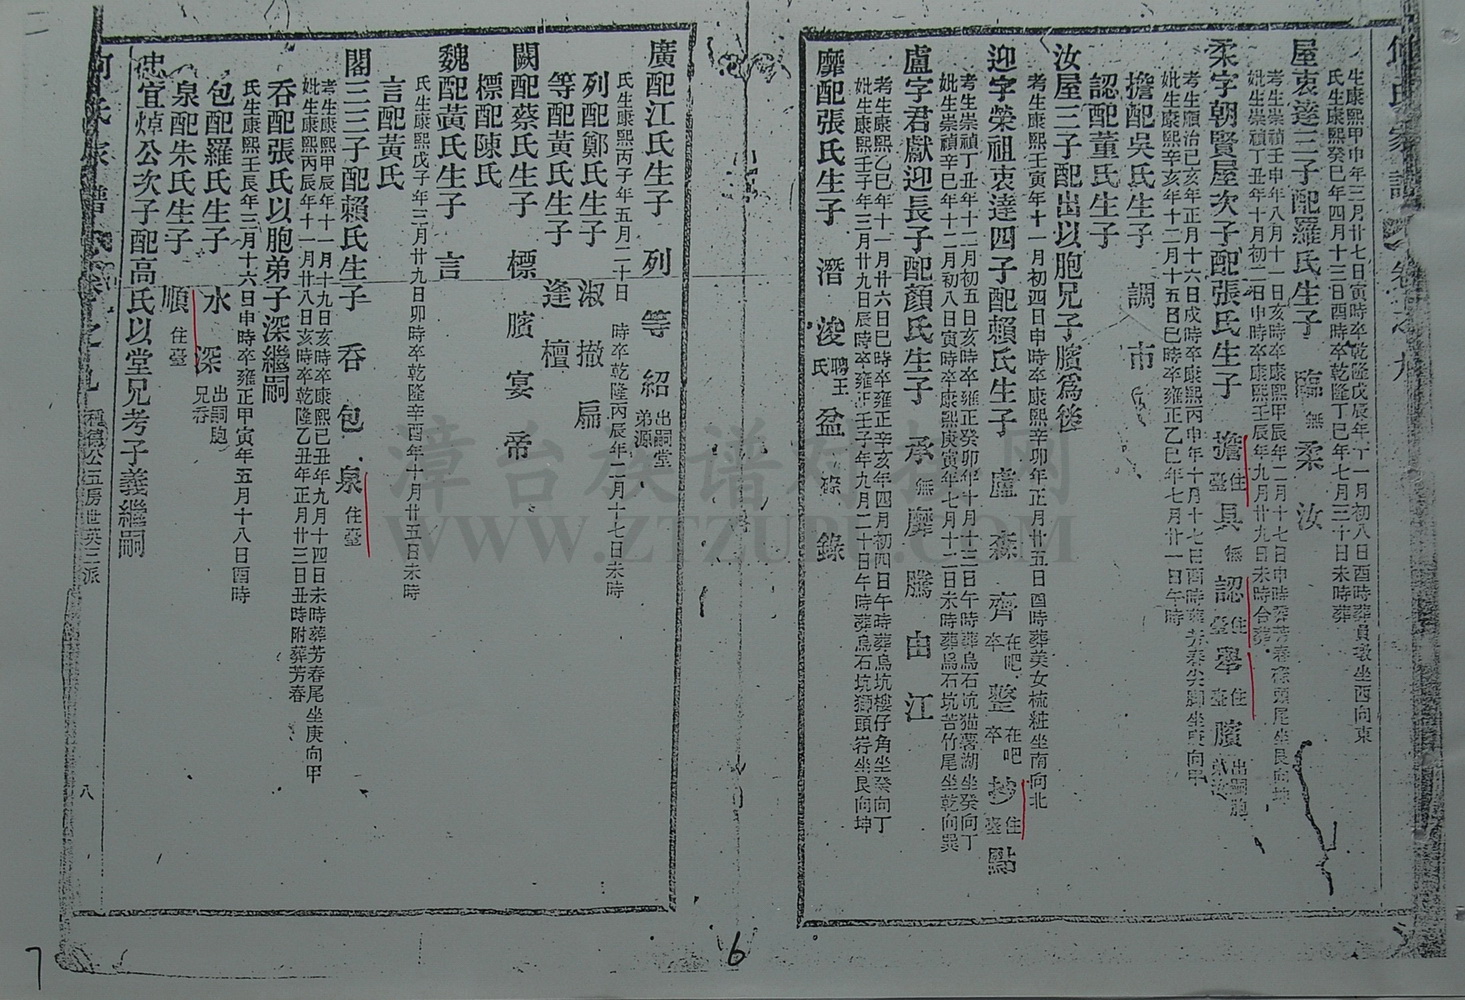 生康熙甲申年三月廿七日寅時卒乾隆戊辰年十一月初八日酉時葬員墩坐西向東
氏生康熙癸巳年四月十三日酉時卒乾隆丁巳年七月三十日未時葬
屋衷達三子配羅氏生子 臨無 柔 汝
考生崇禎壬申年八月十一日亥時卒康熙甲辰年二月十七日申時
妣生崇禎丁丑年十月初二日申時卒康熙壬辰年九月廿九日未時合葬
柔字朝賢屋次子配張氏生子 擔住臺 具無 認住臺 舉住臺 臏出嗣胞
考生順治己亥年正月十六日戌時卒康熙丙申年十月十七日酉時葬芳春尖脚坐巽向甲
妣生康熙辛亥年十二月十五日巳時卒雍正乙巳年七月廿一日午時
擔配吳氏生子 調 市
認配董氏生子
汝屋三子配出以胞兄子臏爲後
考生康熙壬寅年十一月初四日申時卒康熙辛卯年正月廿五日酉時葬美女梳粧坐南向北
迎字榮祖衷達四子配賴氏生子 廬 森 齊在吧卒 整在吧卒 抄住臺 點
考生崇禎丁丑年十二月初五日亥時卒雍正癸卯年十月十三日午時葬烏石坑猫薯湖坐癸向丁
妣生崇禎辛巳年十二月初八日寅時卒康熙庚寅年七月十二日未時葬烏石坑苦竹尾坐乾向巽
盧字君獻迎長子配顏氏生子 承無 靡 騰 由 江
考生康熙乙巳年十一月廿六日巳時卒雍正辛亥年四月初四日午時葬烏坑樓仔角坐癸向丁
妣生康熙壬子年三月廿九日辰時卒雍正壬子年九月二十日午時葬烏石坑獅頭坐艮向坤
靡配張氏生子 潛 浚聘王氏 盆 條 錄
廣配江氏生子 列 等 紹出嗣堂弟源
氏生康熙丙子年五月二十日 時卒乾隆丙辰年二月十七日未時
列配鄭氏生子 淑 撤 扁
等配黃氏生子 逢 檀
闕配蔡氏生子 標 臏 宴 帝
標配陳氏
魏配黃氏生子 言
氏生康熙戊子年三月廿九日卯時卒乾隆辛酉年十月廿五日未時
言配黃氏
閣三三子配賴氏生子 吞 包 泉住臺
考生康熙甲辰年十一月十九日亥時卒康熙己丑年九月十四日未時葬芳春尾坐庚向甲
妣生康熙丙辰年十一月廿八日亥時卒乾隆乙丑年正月廿三日丑時附葬芳春
吞配張氏以胞弟子深繼嗣
氏生康熙壬辰年三月十六日申時卒雍正甲寅年五月十八日酉時
包配羅氏生子 水 深出嗣胞兄吞
泉配朱氏生子 順住臺
忠宜焯公次子配高氏以堂兄考子義繼嗣
八
漳台族谱对接网
WWW.ZTZUPU.COM
6
7